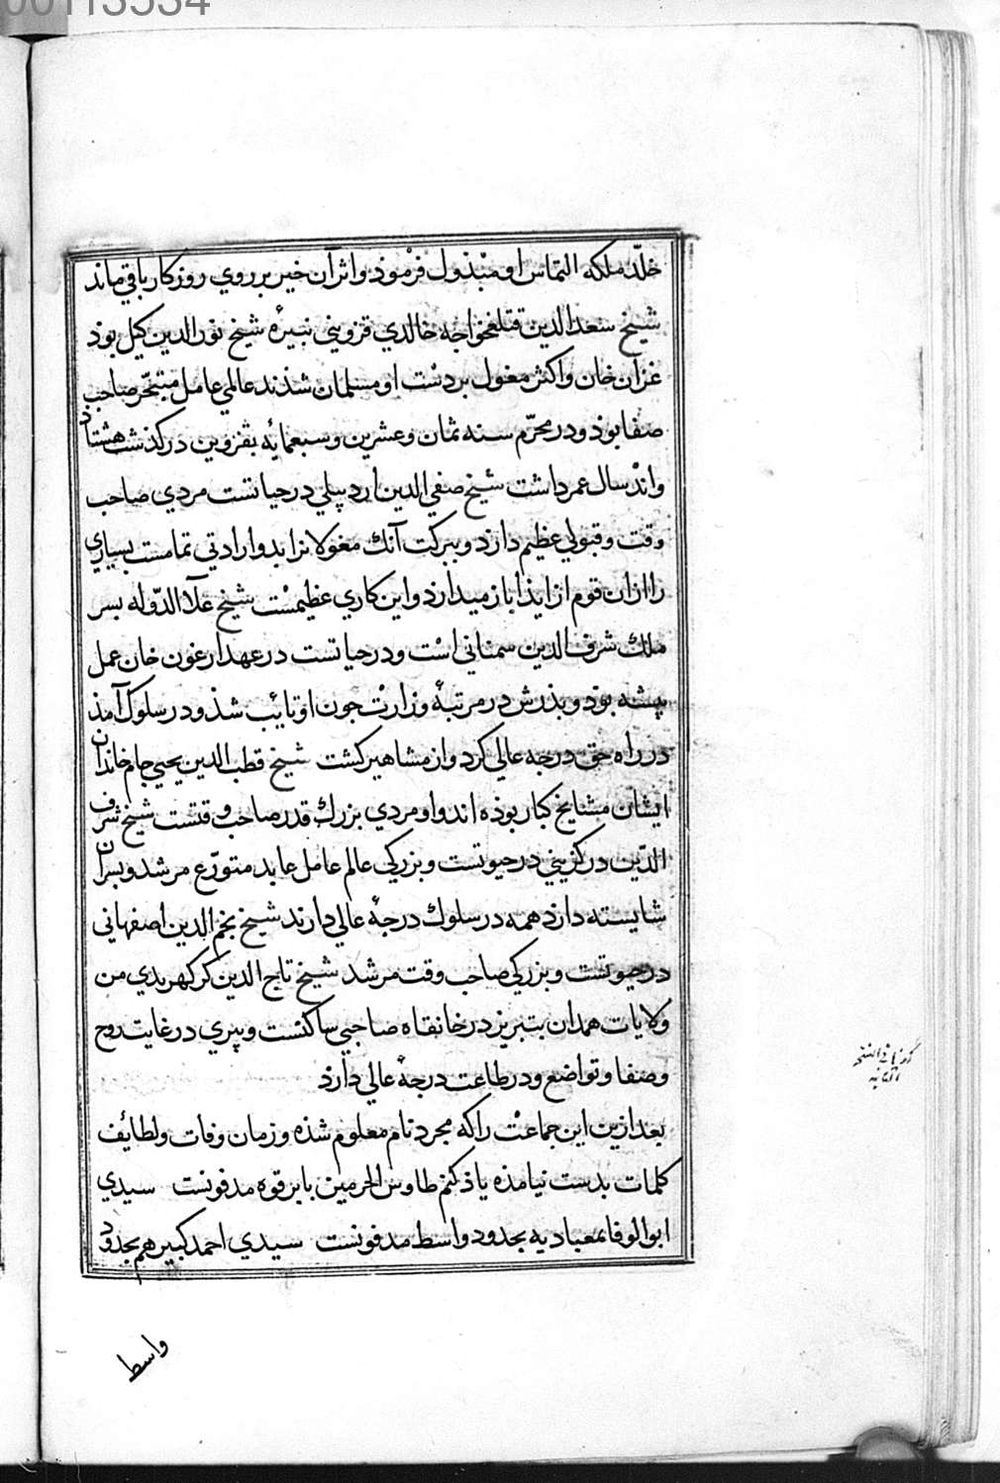 00113534
خلّد ملكه التماس او مبذول فرموذ و اثر آن خير بر روي روزكار باقي ماند
شيخ سعد الدين قتلغخواجه خالدي قزويني نبيرهٔ شيخ نور الدين كيل بوذ
غزان خان و اكثر مغول بر دست او مسلمان شذند عالمي عامل متبحّر صاحب
صفا بوذ و در محرّم سنه ثمان و عشرين و سبعمايه بقزوين دركذشت هشتاد
و اند سال عمر داشت شيخ صفي الدين اردبيلي در حيانست مردي صاحب
وقت و قبولي عظيم دارذ و ببركت آنك مغولانرا بدو ارادتي تمامست بسياري
را ازان قوم از ايذا باز ميدارذ و اين كاري عظيمست شيخ علآ الدّوله بسر
ملك شرف الدين سمناني است و در حياتست در عهد ارغون خان عمل
پيشه بوذ و بذرش در مرتبهٔ وزارت جون او تايب شذ و در سلوك آمذ
در راه حق درجه عالي كرد و از مشاهير كشت شيخ قطب الدين يحيي جام خاندان
ايشان مشايخ كبار بوذه اند و او مردي بزرك قدر صاحب وقتست شيخ شرف
الدّين دركزيني در حيوتست و بزركي عالم عامل عابد متورّع مرشد و بسران
شايسته دارد همه در سلوك درجهٔ عالي دارند شيخ نجم الدين اصفهاني
در حيوتست و بزركي صاحب وقت مرشد شيخ تاج الدين كركهريدي من
ولايات همدان بتبريز در خانقاه صاحبي ساكنست و پيري در غايت روح
و صفا و تواضع و در طاعت درجهٔ عالي دارذ
بعد ازين اين جماعت را كه مجرد نام معلوم شذه و زمان وفات و لطائف
كلمات بدست نيامذه ياذ كنم طاوس الحرمين بابرقوه مدفونست سيدي
ابو الوفا بمعباديه بحدود واسط مدفونست سيدي احمد كبير هم بحدود
واسط